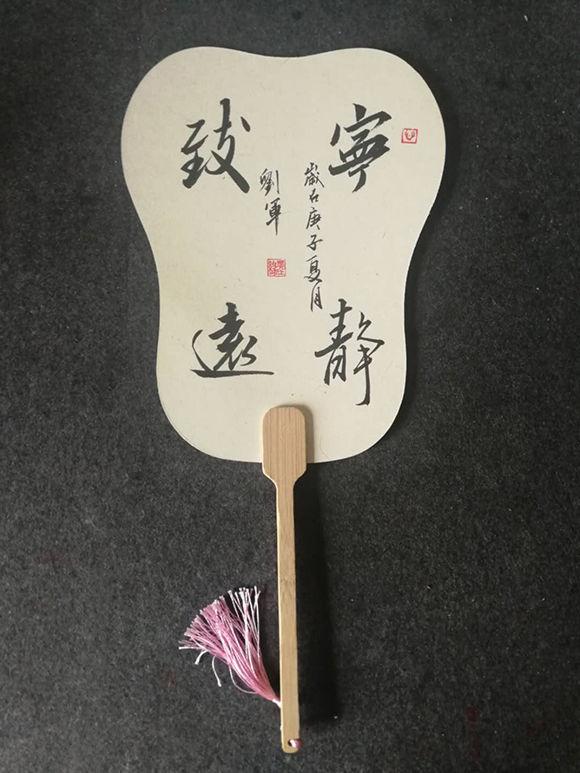 寧靜
致遠
歲在庚子夏月
劉軍